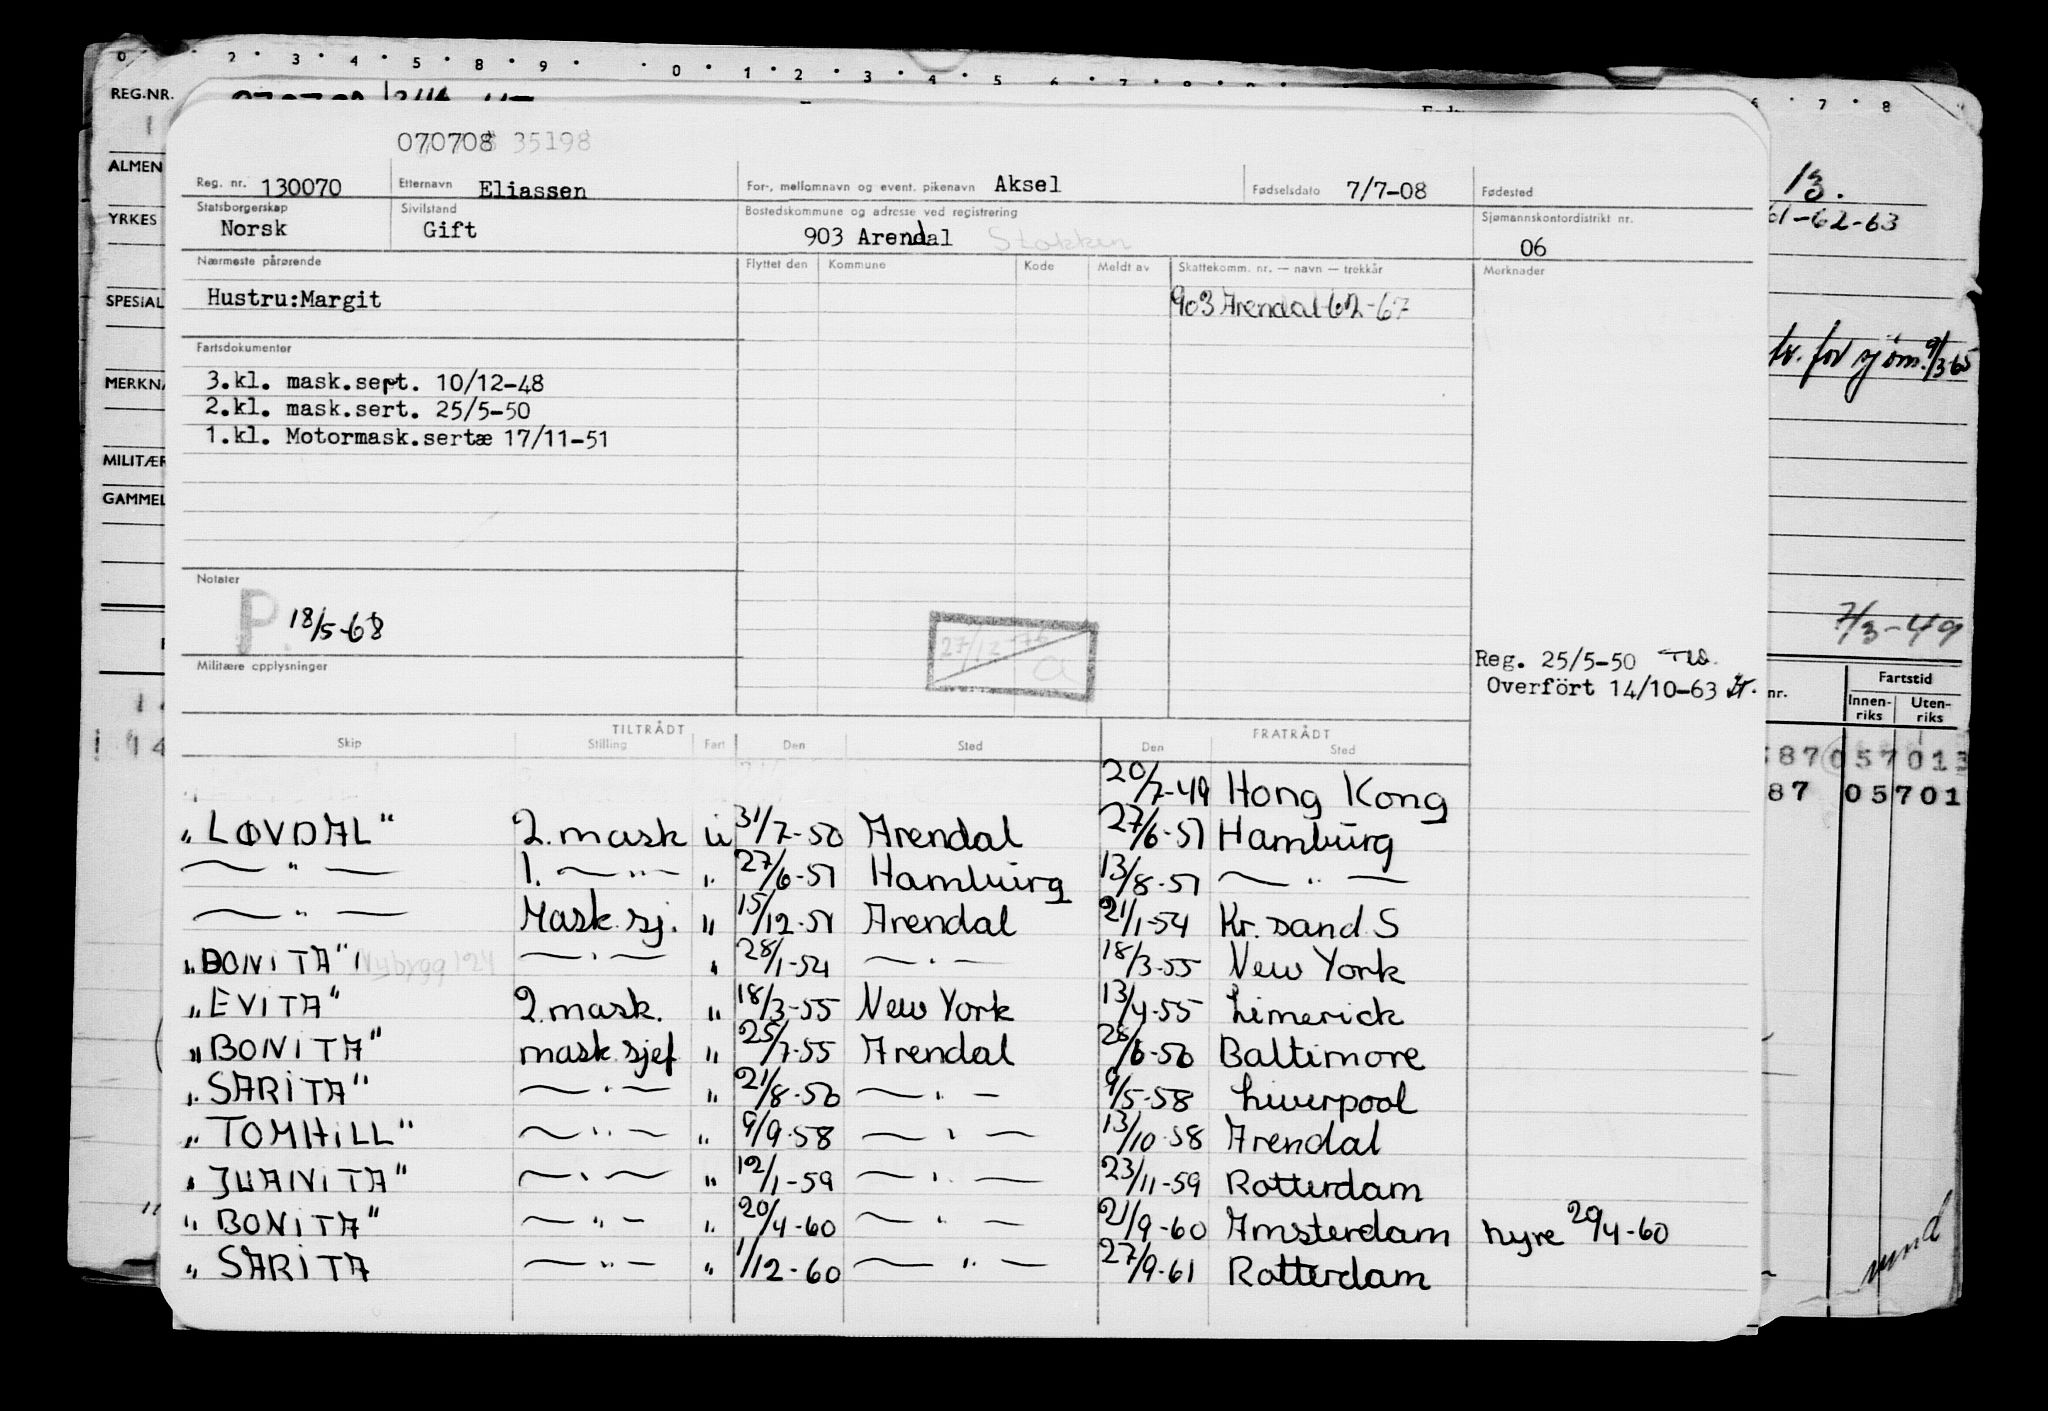 0 2 3 4 5 8 9 0 1 2 3 4 5 6 7 8 9 6 7 8
REG.NR.
ALMEN
YRKES
SPESIAL
MERKNA
MILITÆR
GAMMEL
13.
61-62-63
for sjøm. 9/3 65
7/3-49
nr. Fartstid
Innen-riks Uten-riks
587 057 013
87 05701
070708 35198
Reg. nr. 130070 Etternavn Eliassen For-, mellomnavn og event. pikenavn Aksel Fødselsdato 7/7-08 Fødested
Statsborgerskap Norsk Sivilstand Gift Bostedskommune og adresse ved registrering 903 Arendal Stokken Sjømannskontordistrikt nr. 06
Nærmeste pårørende Flyttet den Kommune Kode Meldt av Skattekomm. nr. — navn — trekkår Merknader
Hustru:Margit 903 Arendal 62-67
Fartsdokumenter
3.kl. mask.sept. 10/12-48
2.kl. mask.sert. 25/5-50
1.kl. Motormask.sertæ 17/11-51
Notater
P. 18/5-68
27/12-76 a
Militære opplysninger
Reg. 25/5-50
Overfört 14/10-63
TILTRÅDT FRATRÅDT
Skip Stilling Fart Den Sted Den Sted
20/7-49 Hong Kong
"LØVDAL" 2. mask u 31/7-50 Arendal 27/6-51 Hamburg
— " — 1. — " — " 27/6-51 Hamburg 13/8-51 — " —
— " — Mask.sj. " 15/12-51 Arendal 21/1-54 Kr. sand S
"BONITA" Nybygg 124 — " — " 28/1-54 — " — 18/3-55 New York
"EVITA" 2.mask. " 18/3-55 New York 13/4-55 Limerick
"BONITA" mask.sjef " 25/7-55 Arendal 28/6-56 Baltimore
"SARITA" — " — " 21/8-56 — " — 9/5-58 Liverpool
"TOMHILL" — " — " 9/9-58 — " — 13/10-58 Arendal
"JUANITA" — " — " 12/1-59 — " — 23/11-59 Rotterdam
"BONITA" — " — " 20/4-60 — " — 21/9-60 Amsterdam hyre 29/4-60
"SARITA — " — " 1/12-60 — " — 27/9-61 Rotterdam